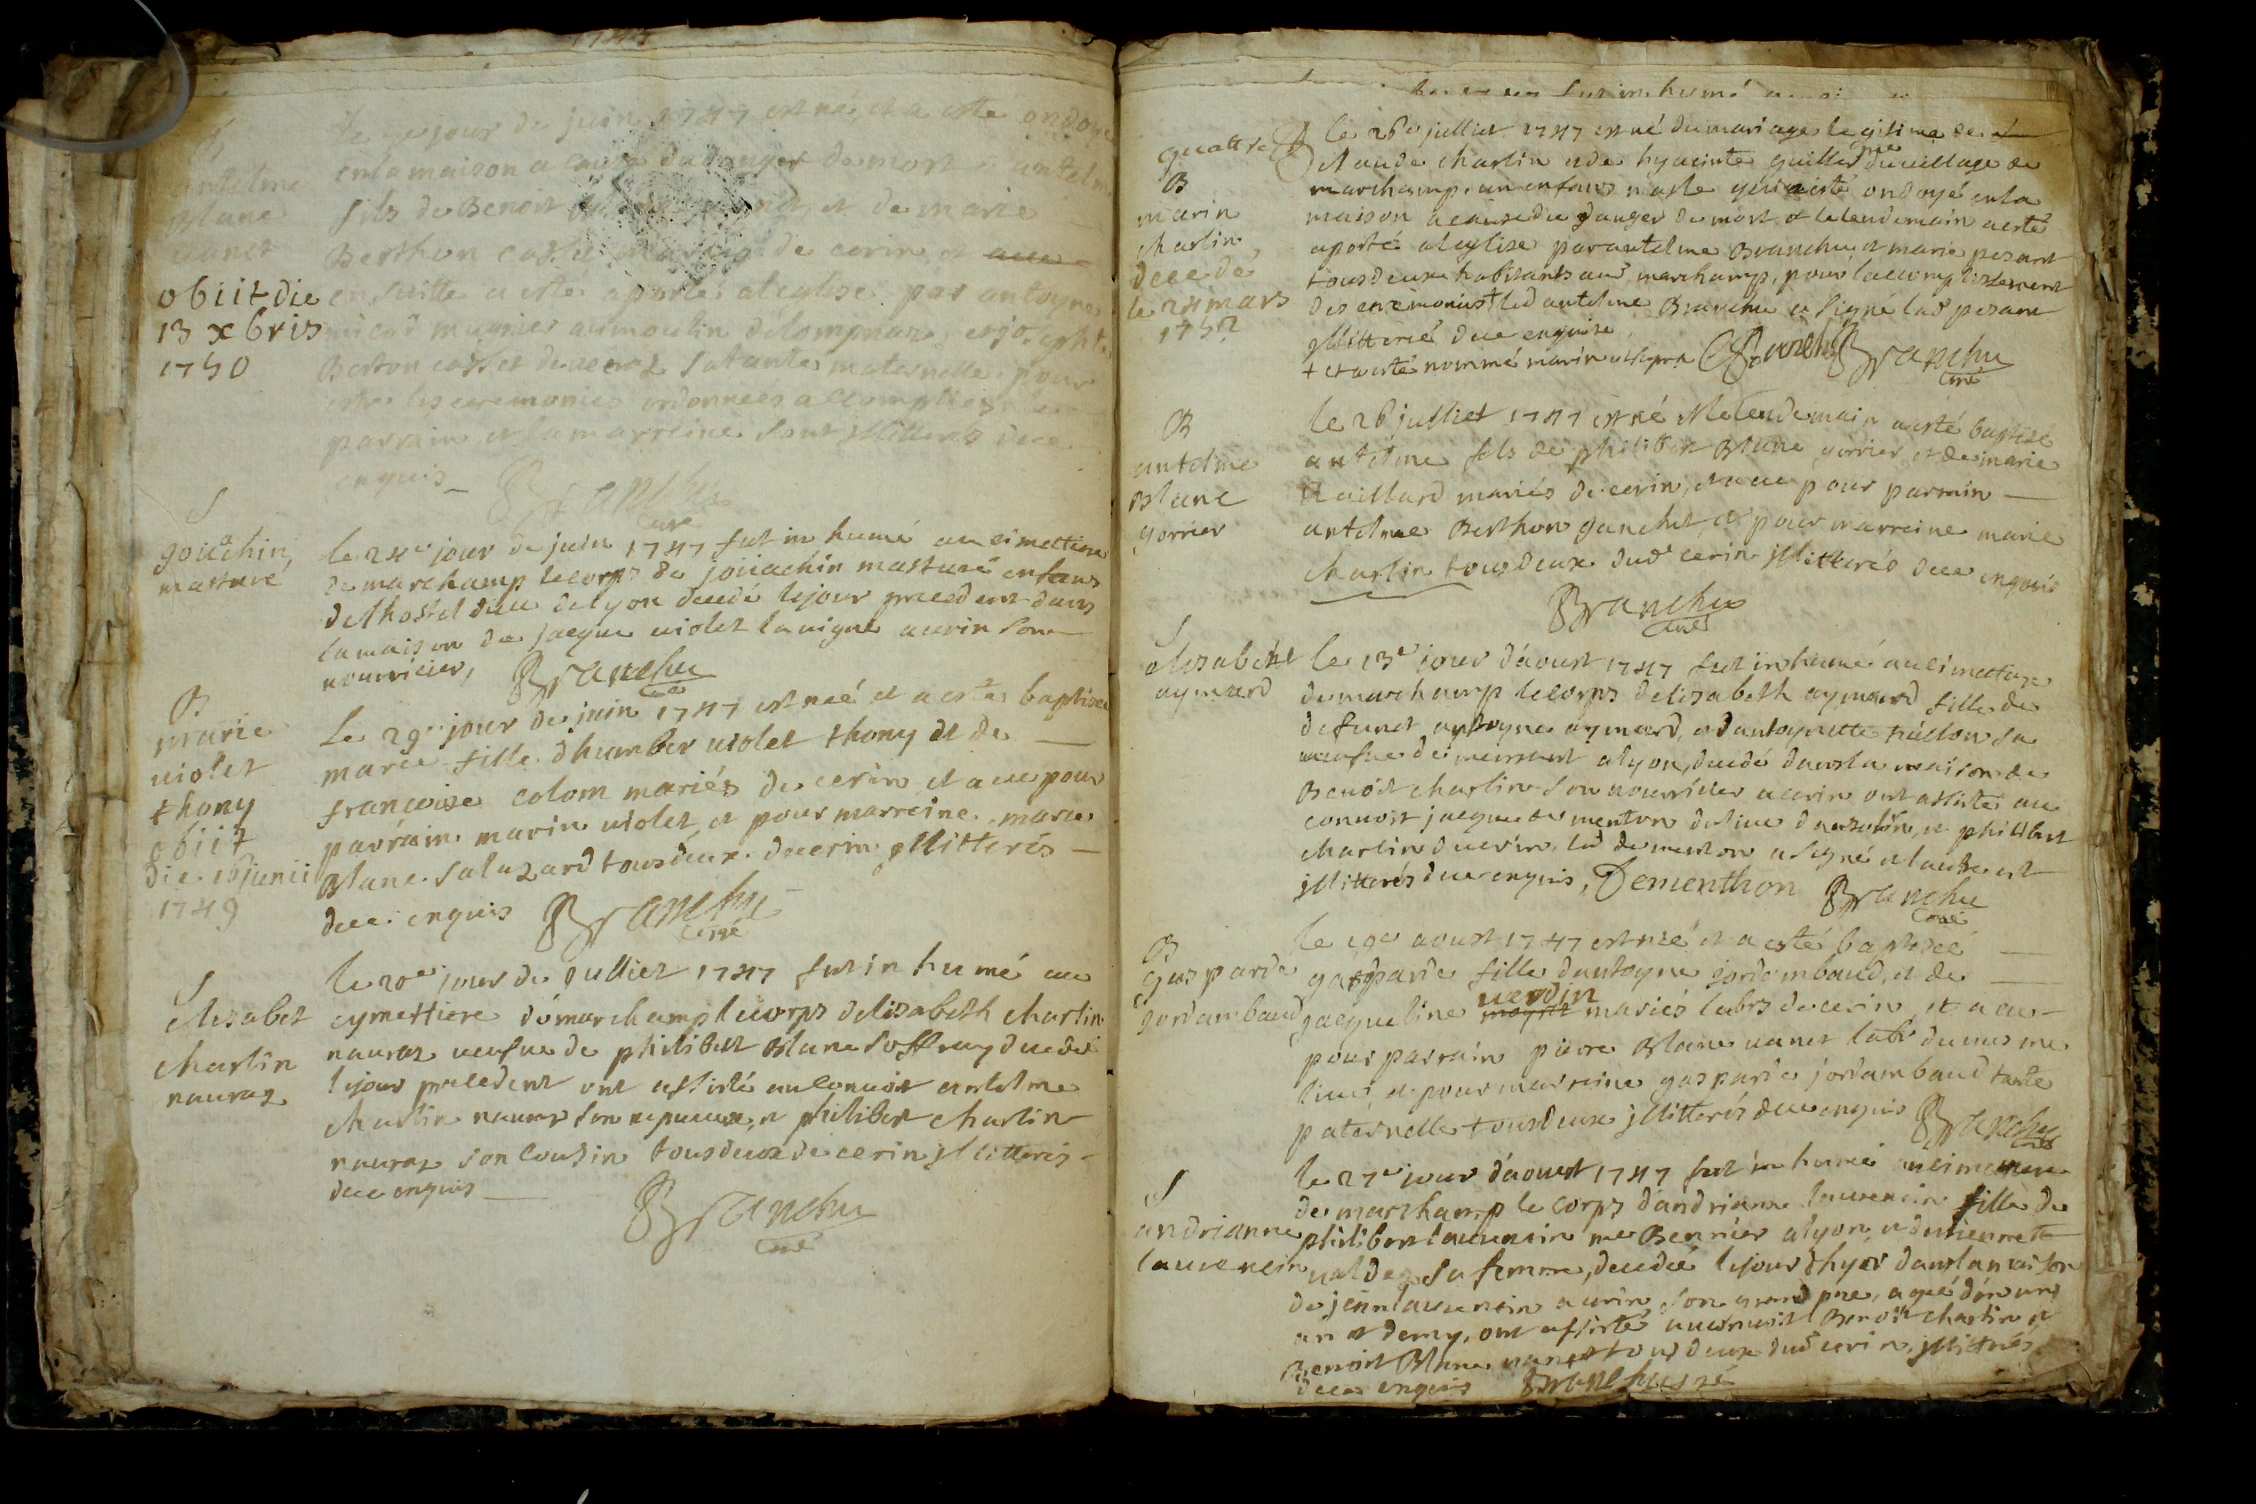 1747
B
antelme
Blanc
uanet
obiit die
13 xbris
1750
jour de juin 1747 est né, et a esté ondoyé
en la maison a cause du danger de mort antelme
fils de Benoit et de marie
Berthon casset mariés de cerin, et
ensuitte a esté aporté a l'eglise par antoyne
munier au moulin de lompnaz, et josephte
Berton casset de cerin sa tante maternelle pour
estre les ceremonies ordonnees accomplies le
parrain et la marreine sont jllitterés de ce
enquis Branchu
curé
S
joüachin
masturé
le 24e jour de juin 1747 fut inhumé au cimettiere
de marchamp le corps de joüachin masturé enfans
de l'hostel dieu de lyon decedé le jour precedent dans
la maison de jacque uiolet lauigne a cerin son
nourricier, Branchu
curé
B
marie
uiolet
thony
obiit
die 16 junii
1749
Le 29e jour de juin 1747 est neé et a esté baptisée
marie fille d'humber uiolet thony et de
francoise colom mariés de cerin et a eu pour
parrain marin uiolet, et pour marreine marie
Blanc salazard tous deux de cerin jllitterés
de ce enquis Branchu
curé
S
elizabet
charlin
nauraz
le 20e jour de jullier 1747 fut inhumé au
cymettiere de marchamp le corps delizabeth charlin
nauraz ueufue de philibert Blanc soffray decedé
le jour precedent ont assisté au conuoit antelme
charlin nauraz son nepueux, et philibert charlin
nauraz son cousin tous deux de cerin jllitterés
de ce enquis
Branchu
curé
fut inhumé
quattre
B
marin
charlin
decedé
le 24 mars
1752
le 26e julliet 1747 est né du mariage legitime de
claude charlin et de hyacinte guillerme du uillage de
marchamp, un enfans masle qui a esté ondoyé en la
maison a cause du danger de mort et le lendemain a esté
aporté a l'eglise par antelme Branchu, et marie pesant
tous deux habitants aud marchamp, pour laccomplissement
des ceremonies + led antelme Branchu a signé lad pesant
jllitteré de ce enquise
+ et a esté nommé marin Branchu Branchu
curé
B
antelme
Blanc
gorrier
le 26 julliet 1747 est né et le lendemain a esté baptisé
antelme fils de philibert Blanc gorrier et de marie
gaillard mariés de cerin, et a eu pour parrain
antelme Berthon ganchet et pour marreine marie
charlin tous deux dud cerin jllitterés de ce enquis
Branchu
curé
S
elizabeht
aymard
le 13e jour d'aoust 1747 fut inhumé au cimettiere
de marchamp le corps delizabeth aymard fille de
defunct antoyne aymard, et dantoynette sa
ueufue demeurant a lyon, decedé dans la maison de
Benoit charlin son nourricier a cerin ont assisté au
conuoit jacque dementon et philibert
charlin de cerin, led dementon a signé et lautre est
jllitterés de ce enquis, Dementhon Branchu
curé
B
gasparde
jordambaud
le 19e aoust 1747 est neé et a esté baptiseé
gasparde fille dantoyne jordambaud, et de
jacqueline uerdin mariés labrs de cerin, et a eu
pour parrain pierre Blanc uanet labr du mesme
lieu, et pour marreine gasparde jordambaud tante
paternelle tous deux jllitterés de ce enquis Branchu
curé
S
andrianne
lauuencin
le 27e jour d'aoust 1747 fut inhumé au cimettiere
de marchamp le corps d'andrianne lauuencin fille de
philibert lauuencin me a lyon, et d'etiennette
ualdez sa femme, decedeé le jour d'hyer dans la maison
de jean lauuencin a cerin son grand pere, agé d'enuiron
an et demy, ont assisté au conuoit Benoit charlin et
Benoit Blanc uanet tous deux dud cerin jllitterés
de ce enquis Branchu curé